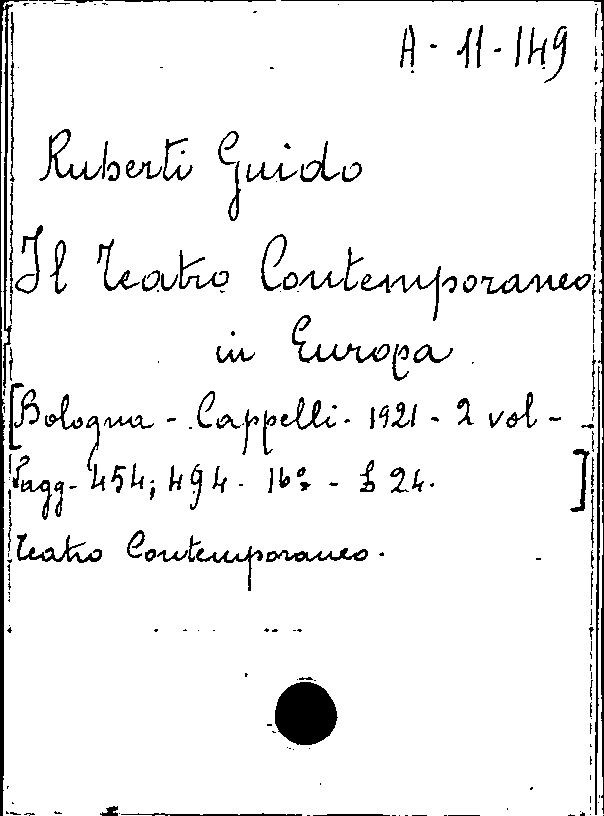 A-11-149
Ruberti Guido
Il Teatro Contemporaneo
in Europa
[Bologna - Cappelli - 1921 - 2 vol -
Pagg- 454; 494. 16° - £ 24. ]
Teatro Contemporaneo.